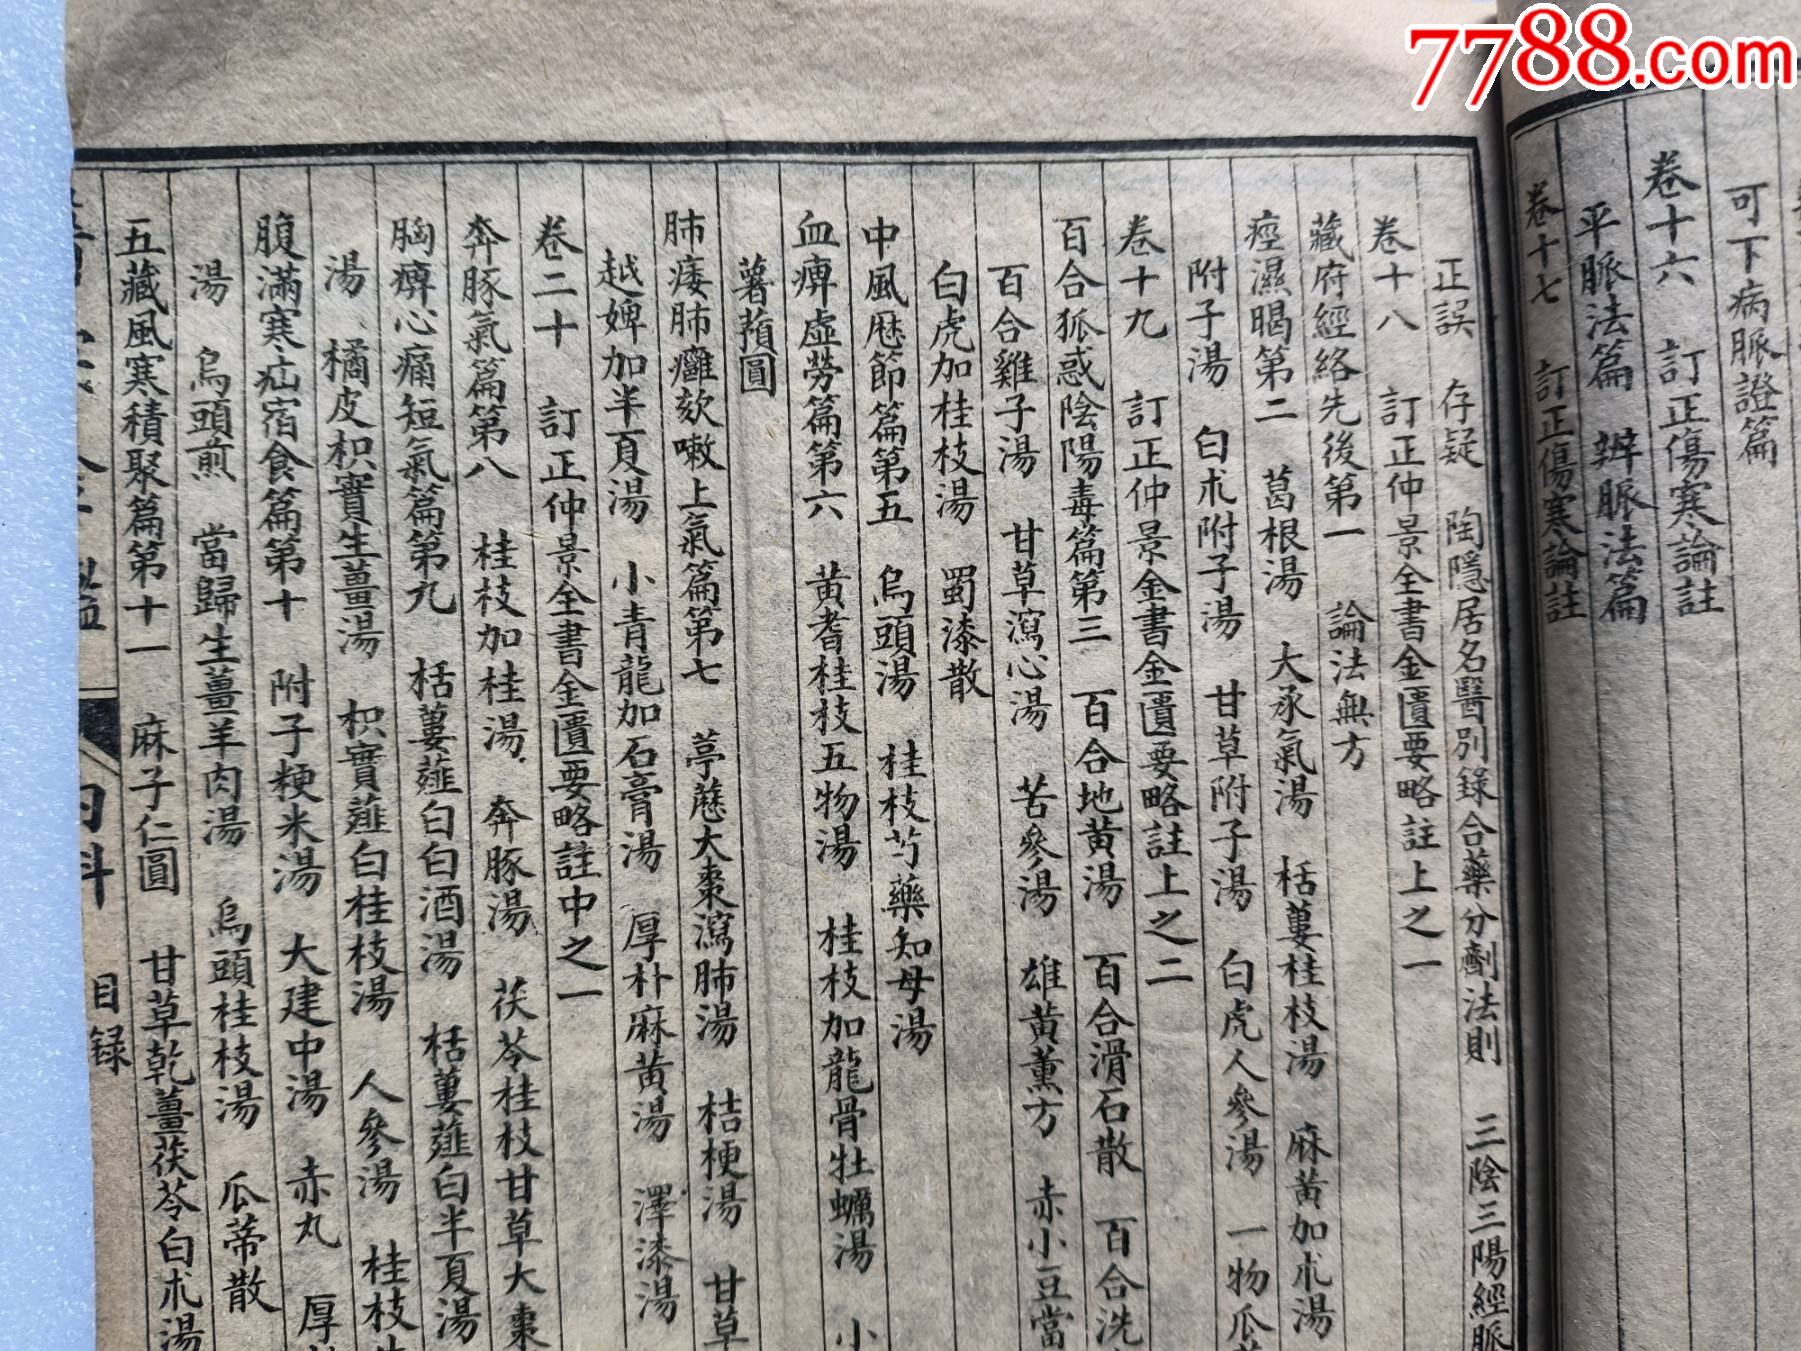 7788.com
可下病脈證篇
卷十六 訂正傷寒論註
平脈法篇 辨脈法篇
卷十七 訂正傷寒論註
正誤 存疑 陶隱居名醫別錄合藥分劑法則 三陰三陽經脈
卷十八 訂正仲景全書金匱要略註上之一
藏府經絡先後第一 論法無方
痙濕暍第二 葛根湯 大承氣湯 栝蔞桂枝湯 麻黃加朮湯
附子湯 白朮附子湯 甘草附子湯 白虎人參湯 一物瓜
卷十九 訂正仲景金書金匱要略註上之二
百合狐惑陰陽毒篇第三 百合地黃湯 百合滑石散 百合洗
百合雞子湯 甘草瀉心湯 苦參湯 雄黃薰方 赤小豆當
白虎加桂枝湯 蜀漆散
中風歷節篇第五 烏頭湯 桂枝芍藥知母湯
血痹虛勞篇第六 黃耆桂枝五物湯 桂枝加龍骨牡蠣湯 小
薯蕷圓
肺痿肺癰欬嗽上氣篇第七 葶藶大棗瀉肺湯 桔梗湯 甘草
越婢加半夏湯 小青龍加石膏湯 厚朴麻黃湯 澤漆湯
卷二十 訂正仲景全書金匱要略註中之一
奔豚氣篇第八 桂枝加桂湯 奔豚湯 茯苓桂枝甘草大棗
胸痹心痛短氣篇第九 栝蔞薤白白酒湯 栝蔞薤白半夏湯
湯 橘皮枳實生薑湯 枳實薤白桂枝湯 人參湯 桂枝生
腹滿寒疝宿食篇第十 附子粳米湯 大建中湯 赤丸 厚
湯 烏頭煎 當歸生薑羊肉湯 烏頭桂枝湯 瓜蒂散
五藏風寒積聚篇第十一 麻子仁圓 甘草乾薑茯苓白朮湯
內科 目錄